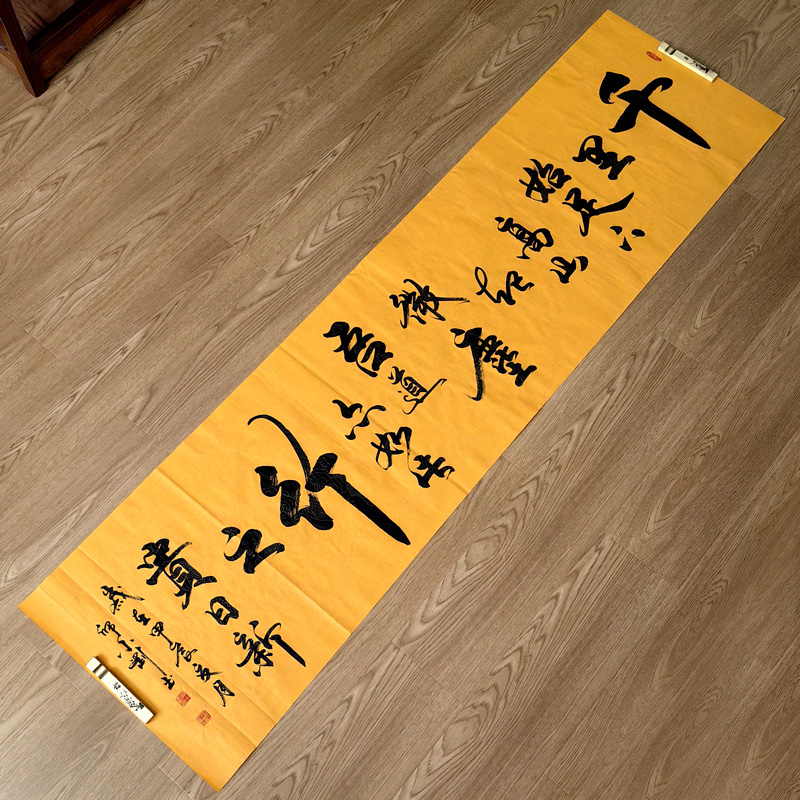 千里始足下
高山起微塵
吾道亦如此
行之貴日新
歲在甲辰月